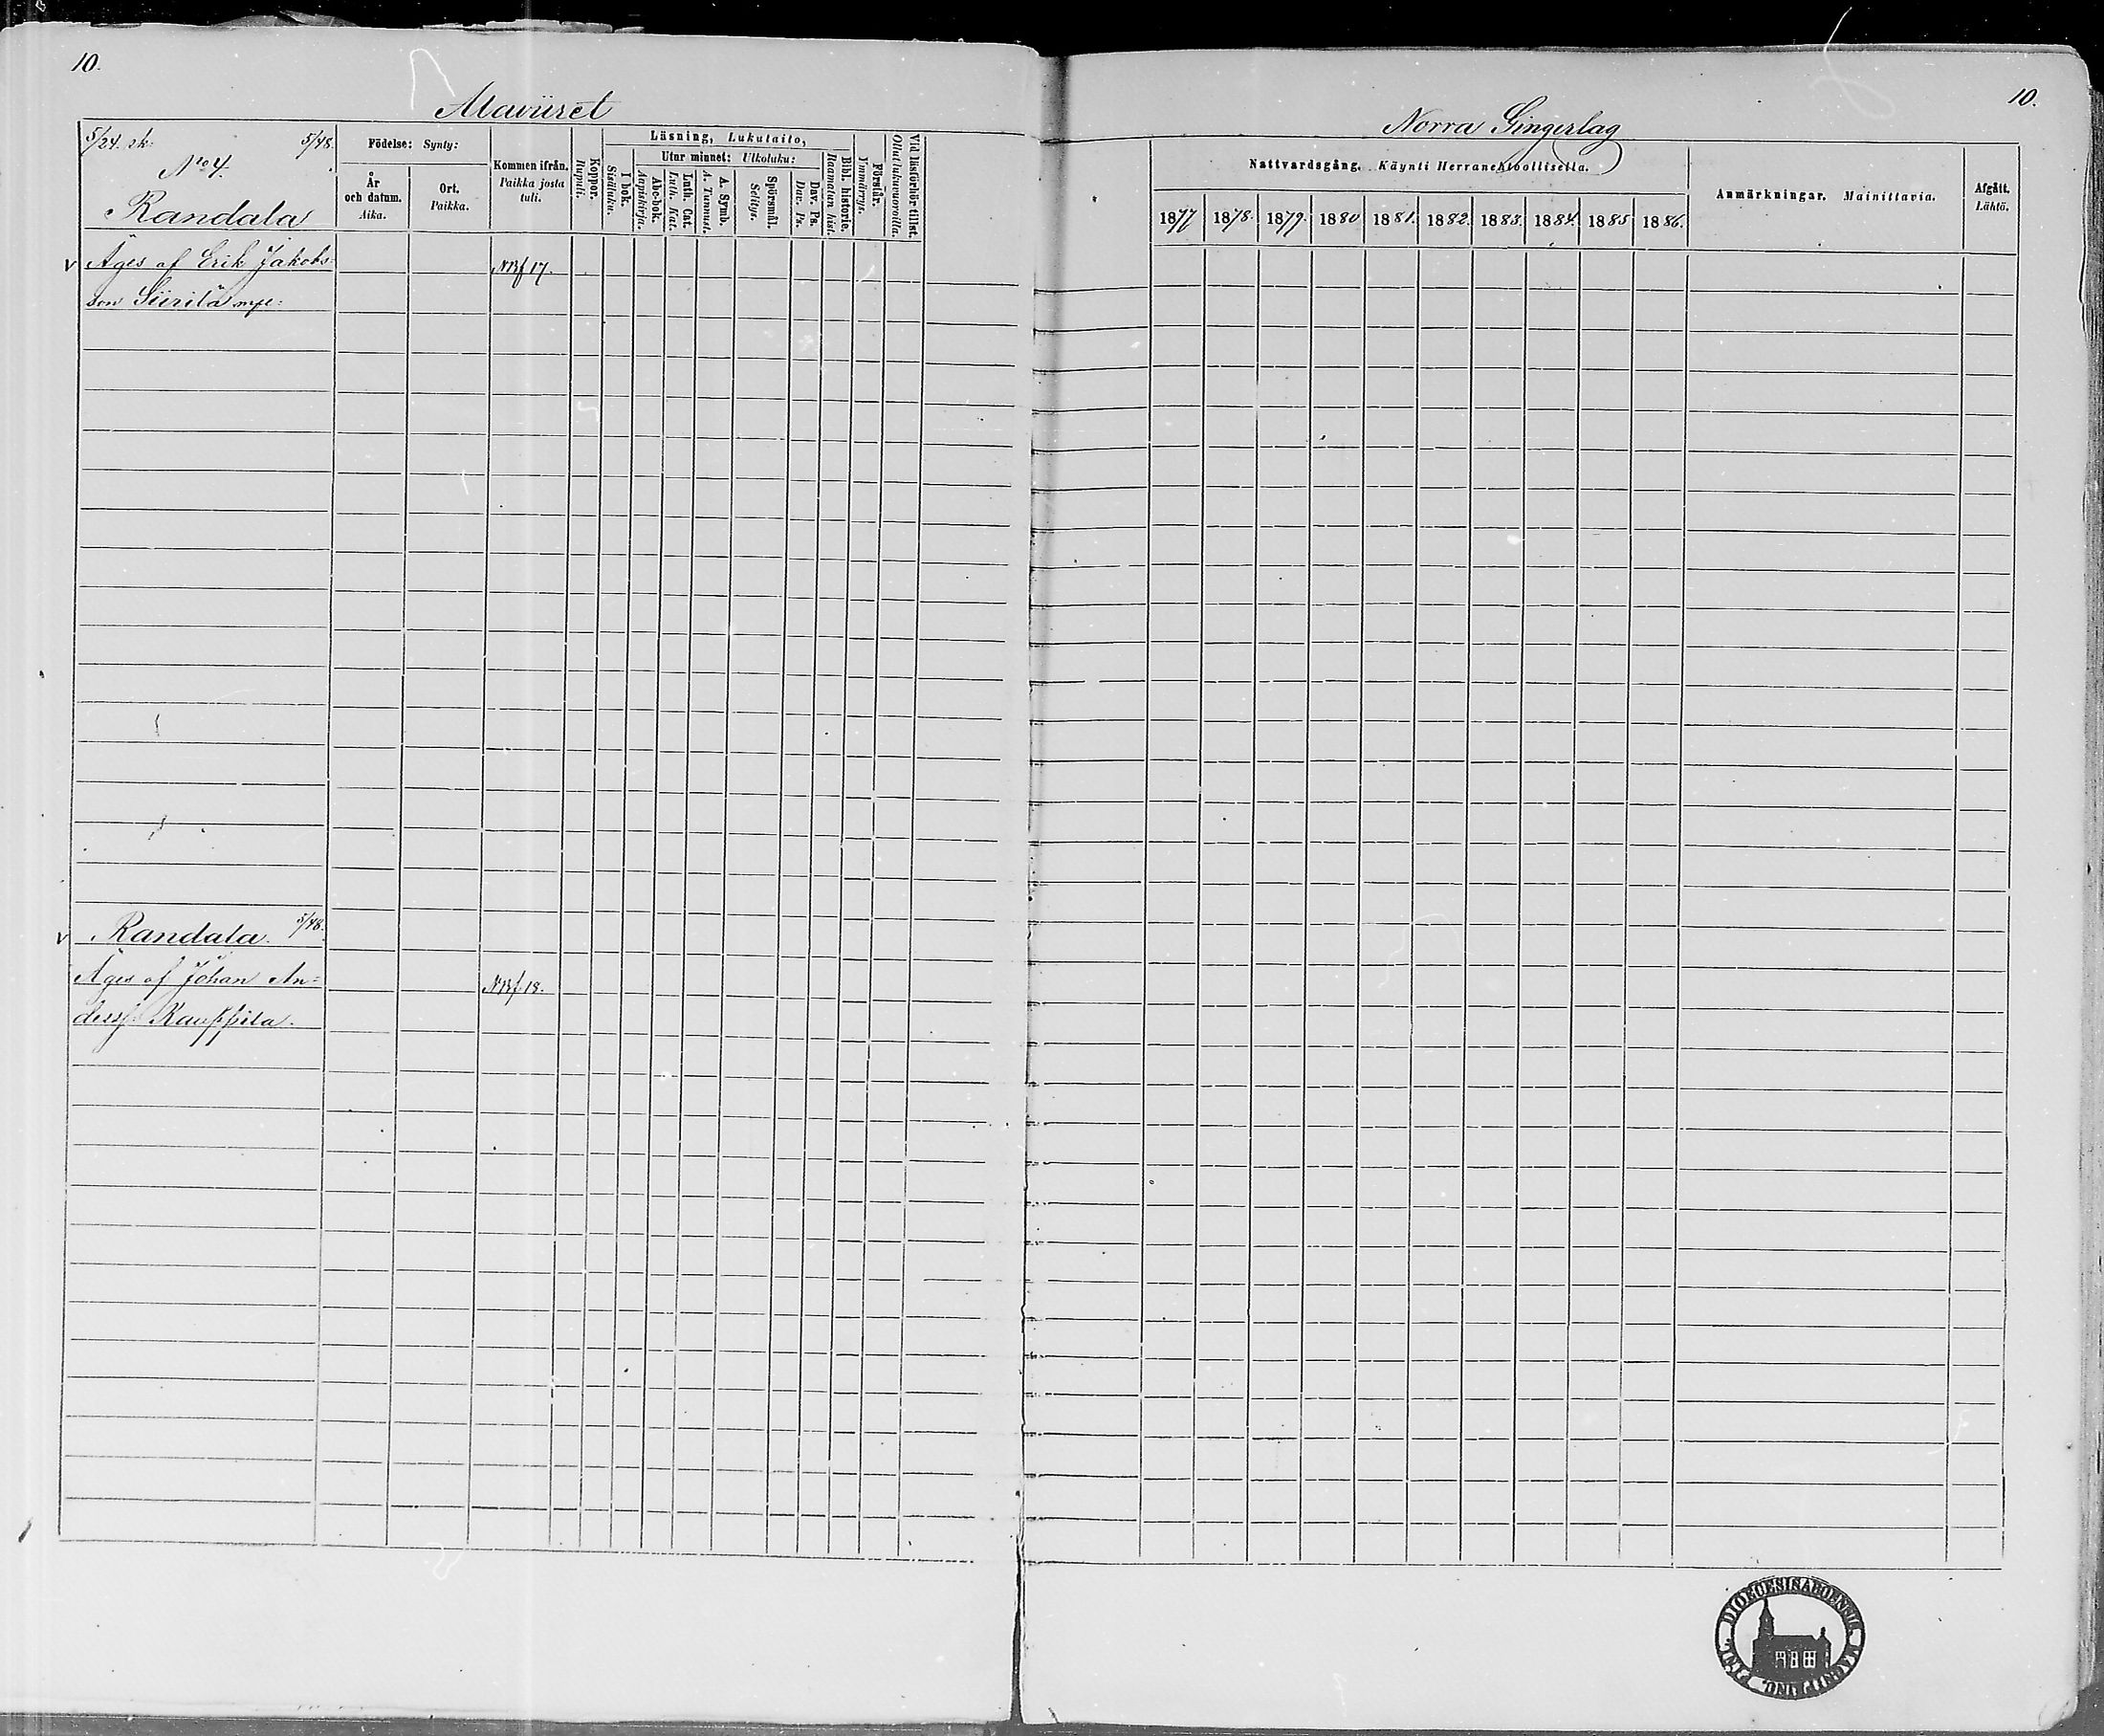 10.
Alaviiret
5/24. sk. 5/48.
No 4.
Randala
Födelse: Synty:
År och datum. Aika.
Ort. Paikka.
Kommen ifrån. Paikka josta tuli.
Koppor. Rupuli.
Läsning, Lukutaito,
I bok. Sisäluku.
Utur minnet: Ulkoluku:
Abc-bok. Aapiskirja.
Luth. Cat. Luth. Kat.
A. Symb. A. Tunnust.
Spörsmål. Selitys.
Dav. Ps. Dav. Ps.
Bibl. historie. Raamatun hist.
Förstår. Ymmärrys.
Vid läsförhör tillst. Ollut lukuvuoroilla.
Äges af Erik Jakobs-
son Siirilä
17.
Randala. 5/48.
Äges af Johan An-
derss. Kauppila.
18.
10.
Norra Gingerlag
Nattvardsgång. Käynti Herran ehtoollisella.
1877 1878. 1879. 1880 1881. 1882. 1883. 1884. 1885 1886.
Anmärkningar. Mainittavia.
Afgått. Lähtö.